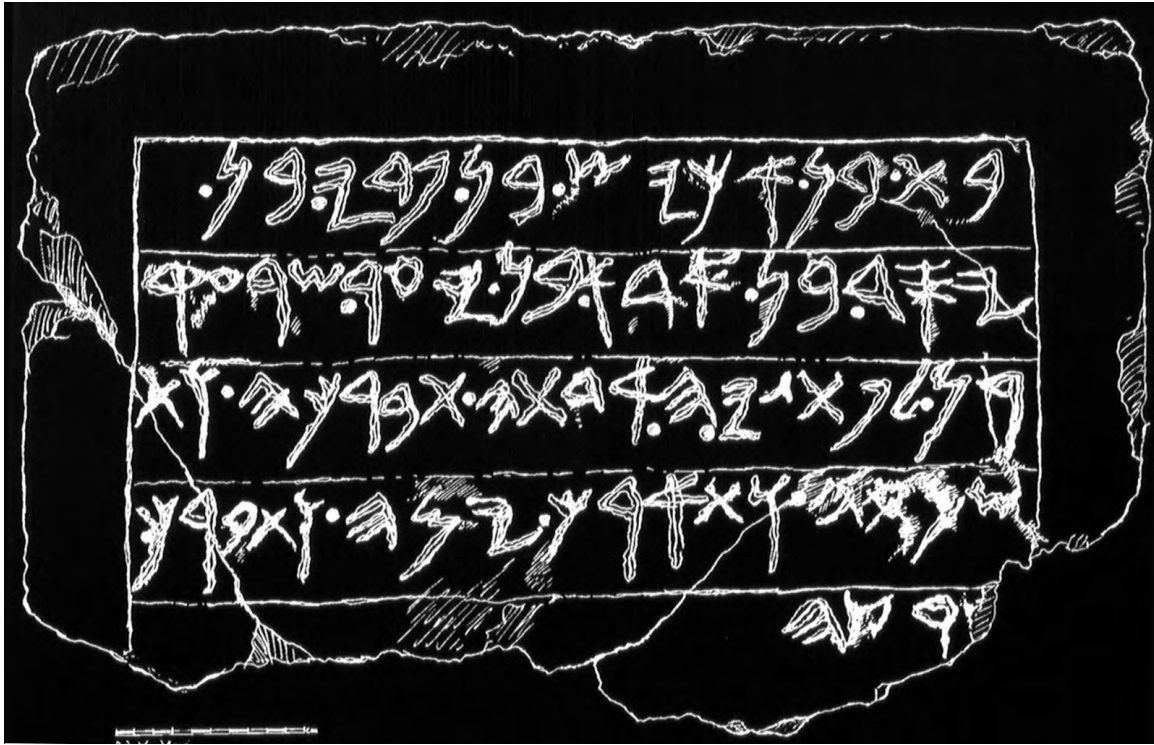 𐤁𐤕.𐤁𐤍.𐤀𐤊𐤉𐤔.𐤁𐤍.𐤐𐤃𐤉.𐤁𐤍.
𐤉𐤎𐤃.𐤁𐤍.𐤀𐤃𐤀.𐤁𐤍.𐤉𐤏𐤓.𐤔𐤓𐤏𐤒
𐤓𐤍.𐤋𐤐𐤕𐤂𐤉𐤄.𐤀𐤃𐤕𐤄.𐤕𐤁𐤓𐤊𐤄.𐤅𐤕
𐤔𐤌𐤓𐤄.𐤅𐤕𐤀𐤓𐤊.𐤉𐤌𐤄.𐤅𐤕𐤁𐤓𐤊